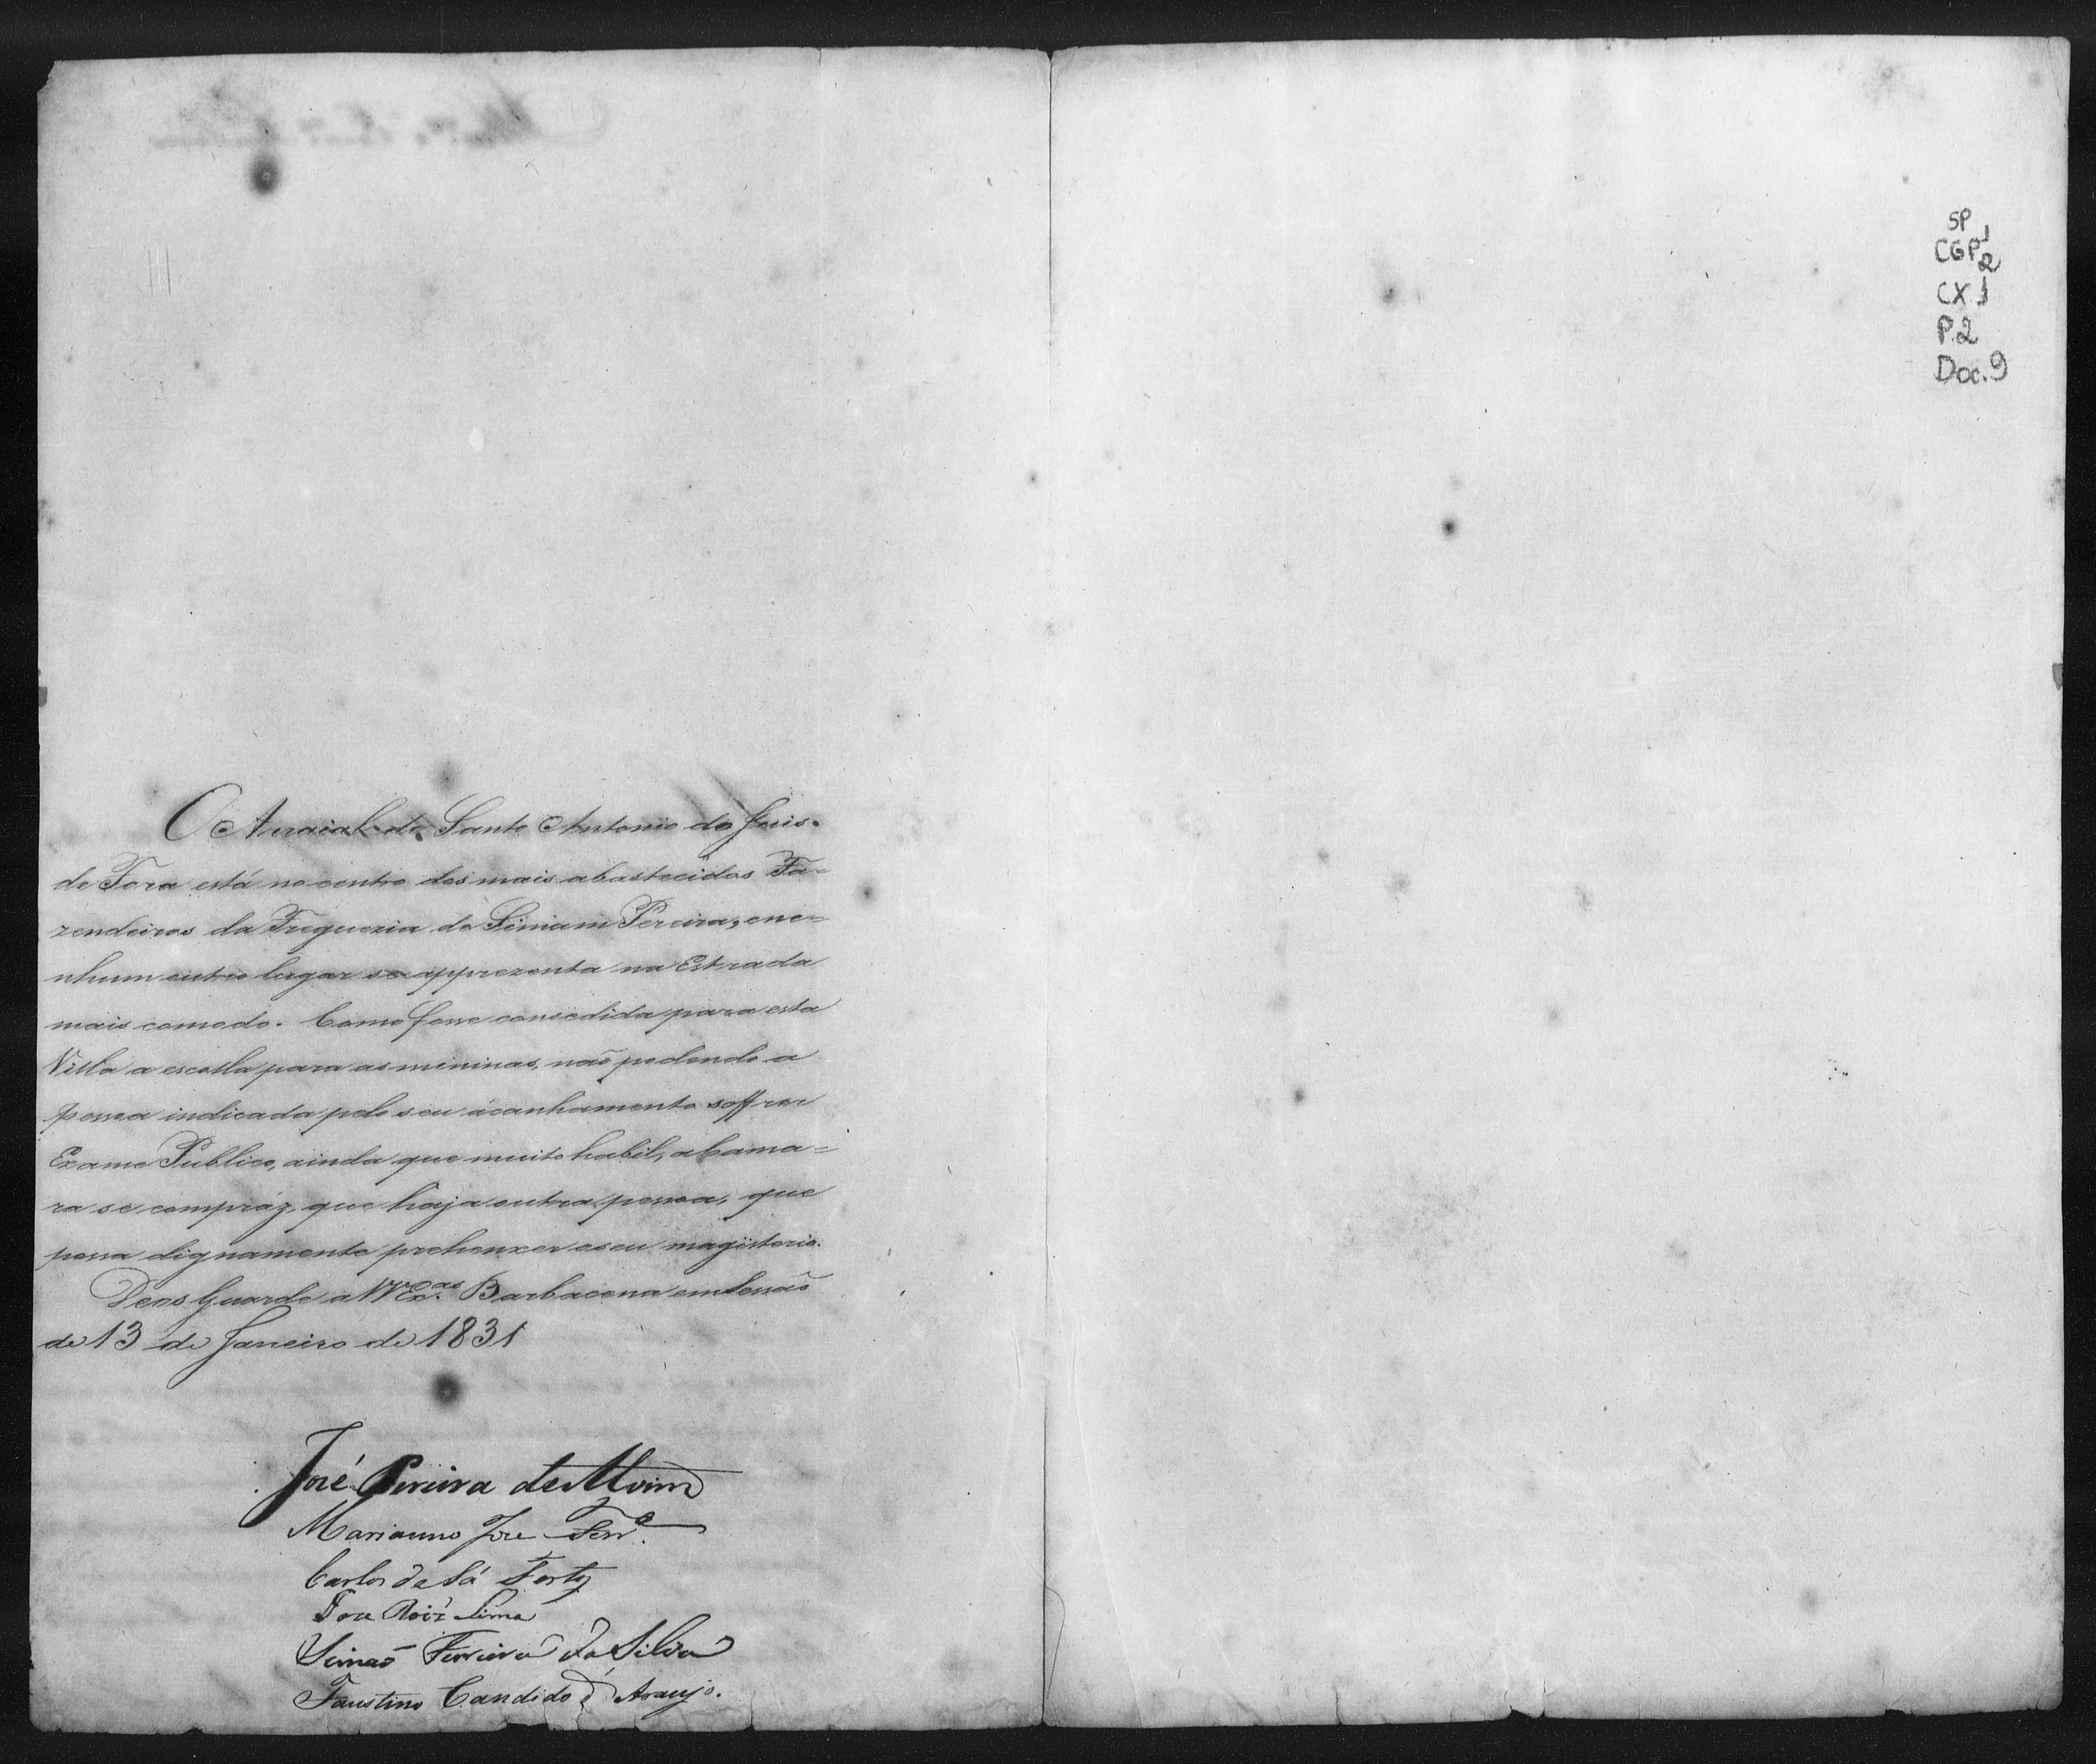 O Arraial de Santo Antonio do Juis
de Fora está no centro dos mais abastecidos Fa=
zendeiros da Freguezia de Simam Pereira, e ne=
nhum outro lugar se apprezenta na Estrada
mais comodo. Como fosse consedida para esta
Villa a escolla para as mininas, não podendo a
pessoa indicada pelo seu acanhamento soffrer
Exame Publico, ainda que muito habil, a Cama=
ra se compráz, que haja outra pessoa, que
possa dignamente prehenxer o seu magisterio.
Deos Guarde a VVEx.as Barbacena em Sessão
de 13 de Janeiro de 1831
José Pereira de Alvim
Marianno Jose Ferr.a
Carlos de Sá Fortes
Jose Roiz Lima
Simaõ Ferreira da Silva
Faustino Candido d'Araujo.
SP
CGP 1
2
CX 1
P.2
Doc.9